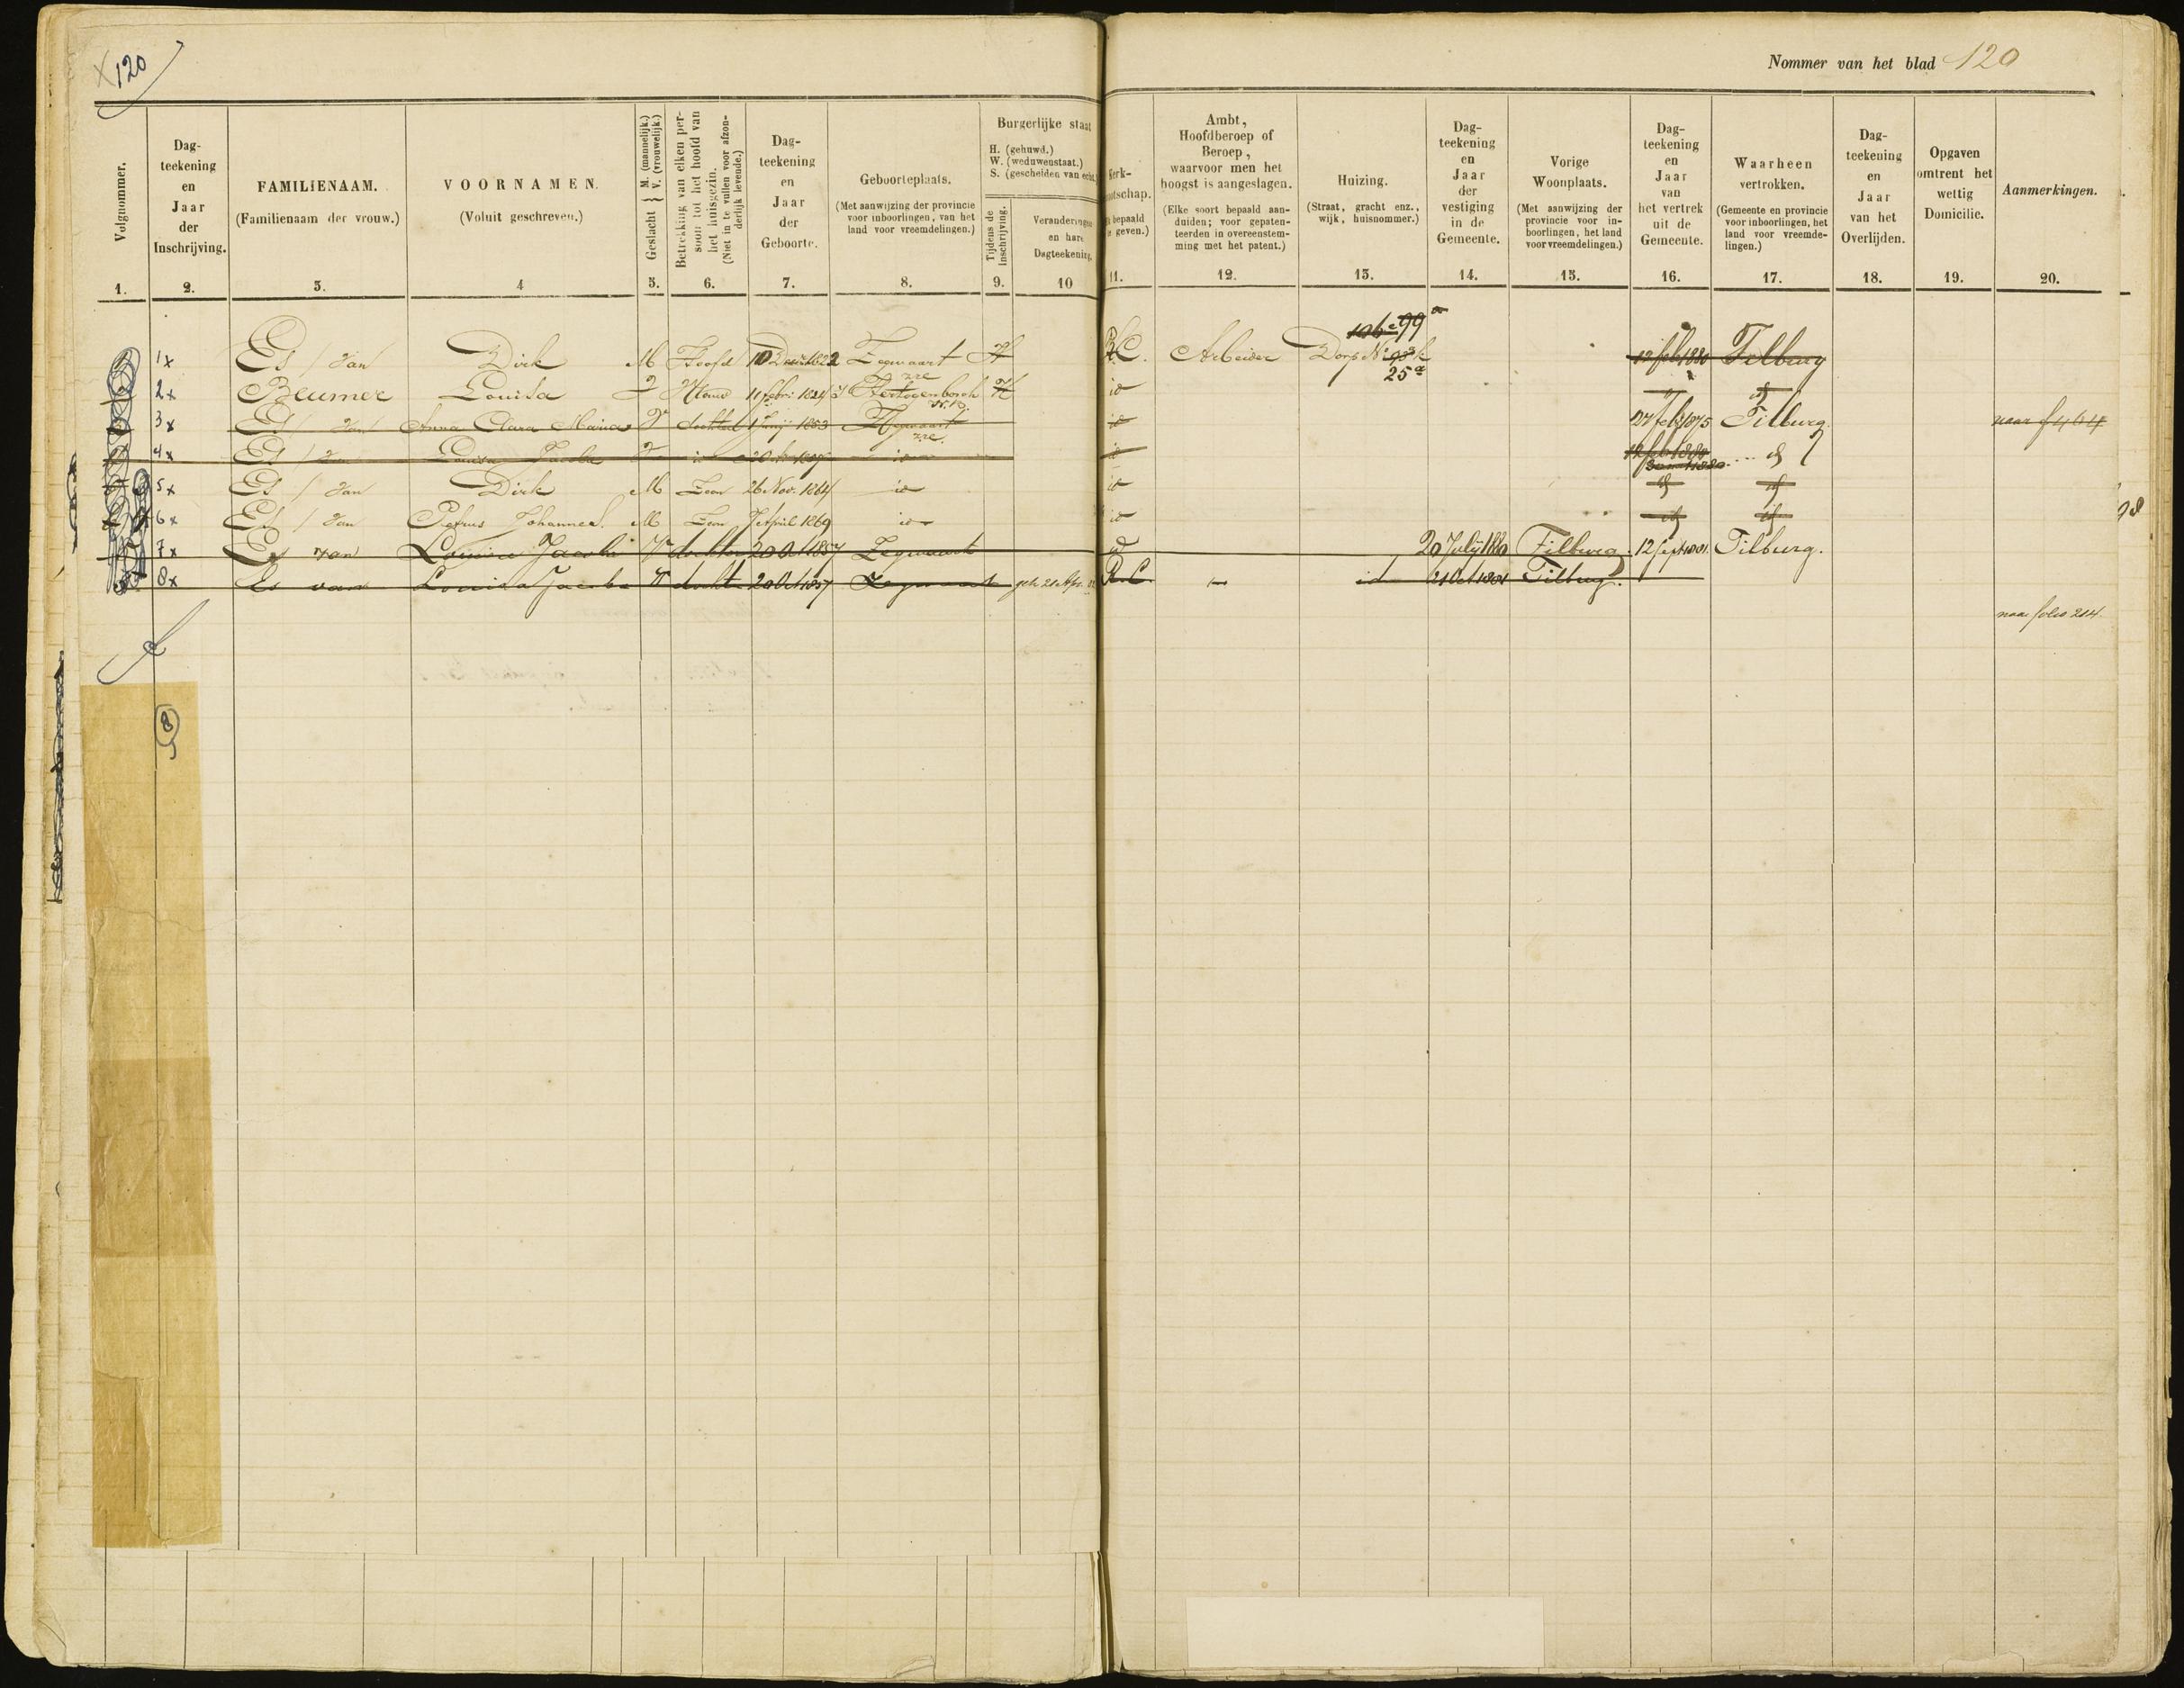 120
Nommer van het blad 120
Volgnommer.
1.
Dag-
teekening
en
Jaar
der
Inschrijving.
2.
FAMILIENAAM.
(Familienaam der vrouw.)
3.
VOORNAMEN.
(Voluit geschreven.)
4
Geslacht { M. (mannelijk.)
V. (vrouwelijk.)
5.
Betrekking van elken per-
soon tot het hoofd van
het huisgezin.
(Niet in te vullen voor afzon-
derlijk levende.)
6.
Dag-
teekening
en
Jaar
der
Geboorte.
7.
Geboorteplaats.
(Met aanwijzing der provincie
voor inboorlingen, van het
land voor vreemdelingen.)
8.
Burgerlijke staat
H. (gehuwd.)
W. (weduwenstaat.)
S. (gescheiden van echt.)
Tijdens de
Inschrijving.
9.
Veranderingen
en hare
Dagteekening.
10
Kerk-
nootschap.
n bepaald
e geven.)
11.
Ambt,
Hoofdberoep of
Beroep,
waarvoor men het
hoogst is aangeslagen.
(Elke soort bepaald aan-
duiden; voor gepaten-
teerden in overeenstem-
ming met het patent.)
12.
Huizing.
(Straat, gracht enz.,
wijk, huisnommer.)
13.
Dag-
teekening
en
Jaar
der
vestiging
in de
Gemeente.
14.
Vorige
Woonplaats.
(Met aanwijzing der
provincie voor in-
boorlingen, het land
voor vreemdelingen.)
15.
Dag-
teekening
en
Jaar
van
het vertrek
uit de
Gemeente.
16.
Waarheen
vertrokken.
(Gemeente en provincie
voor inboorlingen, het
land voor vreemde-
lingen.)
17.
Dag-
teekening
en
Jaar
van het
Overlijden.
18.
Opgaven
omtrent het
wettig
Domicilie.
19.
Aanmerkingen.
20.
106 c 99 a
1x Es / van Dirk M Hoofd 10 Decr 1822 Zegwaart H R.C. Arbeider Dorp No 12 feb 1880 Tilburg
25 a
2x Beumer Louisa V Vrouw 11 febr: 1824 's Hertogenbosch H id id id
N.B.
3x Es / van Anna Clara Maria V dochter 1 Junij 1853 Zegwaart id 27 feb 1875 Tilburg. naar f 464
4x Es / van Louisa Jacoba V id 20 Oct 1857 id id 12 feb 1880 id
5x Es / van Dirk M Zoon 26 Nov. 1864 id id id id
6x Es / van Petrus Johannes. M Zoon 7 April 1869 id id id id
7x Es van Louisa Jacoba V dochter 20 Oct 1857 Zegwaart id 20 Julij 1880 Tilburg. 12 Sept 1881. Tilburg.
8x Es van Louisa Jacoba V docht 20 Oct 1857 Zegwaart geh 21 Apr. R.C. id 21 Oct 1881 Tilburg.
naar folio 214.
8